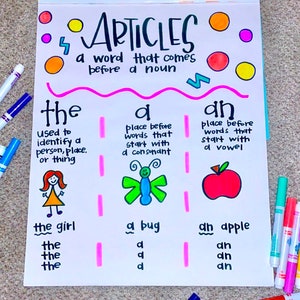 ARTICLES
a word that comes
before a noun
the
used to
identify a
person, place,
or thing
the girl
the
the
the
a
place before
words that
start with
a consonant
a bug
a
a
a
an
place before
words that
start with
a vowel
an apple
an
an
an